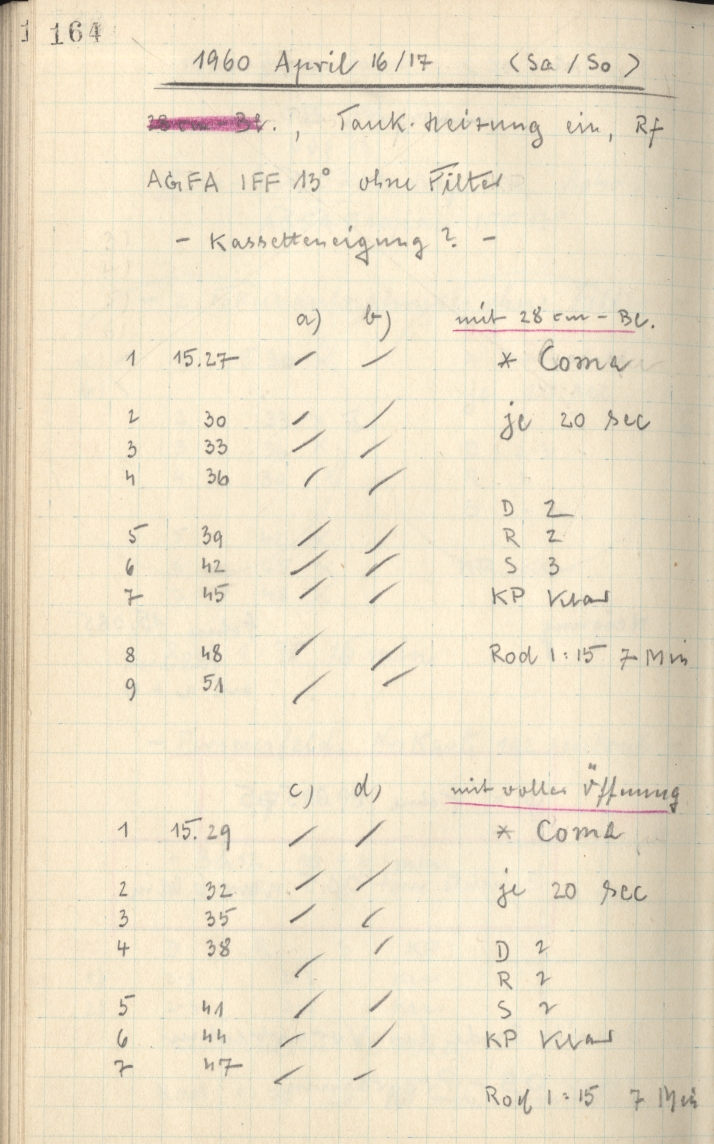 164
1960 April 16/17 (Sa / So)
28 cm - Bl. , Tank-Heizung ein, Rf
AGFA IFF 13° ohne Filter
- Kasseteneigung ? -
a) b) mit 28 cm - Bl.
1 15.27 / / * Coma
2 30 / / je 20 sec
3 33 / /
4 36 / /
D 2
5 39 / / R 2
6 42 / / S 3
7 45 / / KP klar
8 48 / / Rod 1:15 7 Min
9 51 / /
c) d) mit voller Öffnung
1 15.29 / / * Coma
2 32 / / je 20 sec
3 35 / /
4 38 / / D 2
R 2
5 41 / / S 2
6 44 / / KP klar
7 47 / /
Rod 1:15 7 Min